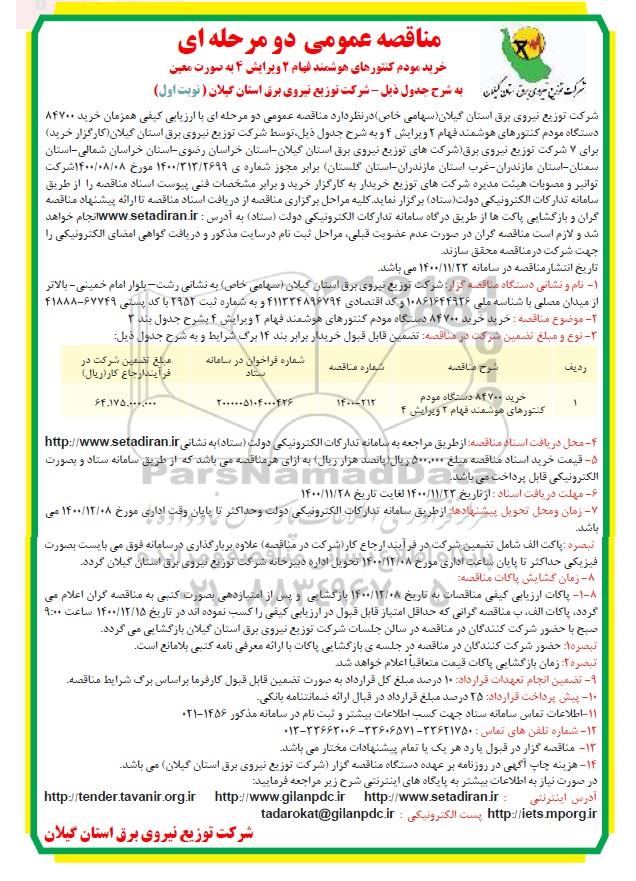 مناقصه عمومی دو مرحله ای
خرید مودم کنتورهای هوشمند فهام ۲ ویرایش ۴ به صورت معین
به شرح جدول ذیل – شرکت توزیع نیروی برق استان گیلان ( نوبت اول )
شرکت توزیع نیروی برق استان گیلان
شرکت توزیع نیروی برق استان گیلان(سهامی خاص)درنظردارد مناقصه عمومی دو مرحله ای با ارزیابی کیفی همزمان خرید ۸۴۷۰۰
دستگاه مودم کنتورهای هوشمند فهام ۲ ویرایش ۴ و به شرح جدول ذیل،توسط شرکت توزیع نیروی برق استان گیلان(کارگزار خرید)
برای ۷ شرکت توزیع نیروی برق(شرکت های توزیع نیروی برق استان گیلان-استان خراسان رضوی-استان خراسان شمالی-استان
سمنان-استان مازندران-غرب استان مازندران-استان گلستان) برابر مجوز شماره ی ۱۴۰۰/۳۱۳/۲۶۹۹ مورخ ۱۴۰۰/۰۸/۰۸شرکت
توانیر و مصوبات هیئت مدیره شرکت های توزیع خریدار به کارگزار خرید و برابر مشخصات فنی پیوست اسناد مناقصه را از طریق
سامانه تدارکات الکترونیکی دولت(ستاد) برگزار نماید.کلیه مراحل برگزاری مناقصه از دریافت اسناد مناقصه تا ارائه پیشنهاد مناقصه
گران و بازگشایی پاکت ها از طریق درگاه سامانه تدارکات الکترونیکی دولت (ستاد) به آدرس : www.setadiran.irانجام خواهد
شد و لازم است مناقصه گران در صورت عدم عضویت قبلی، مراحل ثبت نام درسایت مذکور و دریافت گواهی امضای الکترونیکی را
جهت شرکت درمناقصه محقق سازند.
تاریخ انتشار مناقصه در سامانه ۱۴۰۰/۱۱/۲۳ می باشد.
۱- نام و نشانی دستگاه مناقصه گزار: شرکت توزیع نیروی برق استان گیلان (سهامی خاص) به نشانی رشت–بلوار امام خمینی-بالاتر
از میدان مصلی با شناسه ملی ۱۰۸۶۱۶۴۴۹۲۶ و کد اقتصادی ۴۱۱۳۳۴۸۹۶۷۹۴ و به شماره ثبت ۲۹۵۲ با کد پستی ۶۷۷۴۹-۴۱۸۸۸
۲- موضوع مناقصه : خرید خرید ۸۴۷۰۰ دستگاه مودم کنتورهای هوشمند فهام ۲ ویرایش ۴ بشرح جدول بند ۳
۳- نوع و مبلغ تضمین شرکت در مناقصه: تضمین قابل قبول خریدار برابر بند ۱۴ برگ شرایط و به شرح جدول ذیل:
ردیف | شرح مناقصه | شماره مناقصه | شماره فراخوان در سامانه ستاد | مبلغ تضمین شرکت در فرآیندارجاع کار(ریال)
۱ | خرید ۸۴۷۰۰ دستگاه مودم کنتورهای هوشمند فهام ۲ ویرایش ۴ | ۱۴۰۰-۲۱۲ | ۲۰۰۰۰۰۵۱۰۴۰۰۰۴۲۶ | ۶۴.۱۷۵.۰۰۰.۰۰۰
۴- محل دریافت اسناد مناقصه: ازطریق مراجعه به سامانه تدارکات الکترونیکی دولت (ستاد)به نشانی http://www.setadiran.ir
۵- قیمت خرید اسناد مناقصه مبلغ ۵۰۰,۰۰۰ ریال(پانصد هزار ریال) به ازای هرمناقصه می باشد که از طریق سامانه ستاد و بصورت
الکترونیکی قابل پرداخت می باشد.
۶- مهلت دریافت اسناد : ازتاریخ ۱۴۰۰/۱۱/۲۳ لغایت تاریخ ۱۴۰۰/۱۱/۲۸
۷- زمان ومحل تحویل پیشنهادها: ازطریق سامانه تدارکات الکترونیکی دولت وحداکثر تا پایان وقت اداری مورخ ۱۴۰۰/۱۲/۰۸ می
باشد.
تبصره :پاکت الف شامل تضمین شرکت در فرآیند ارجاع کار(شرکت در مناقصه) علاوه بربارگذاری درسامانه فوق می بایست بصورت
فیزیکی حداکثر تا پایان ساعت اداری مورخ ۱۴۰۰/۱۲/۰۸ تحویل اداره دبیرخانه شرکت توزیع نیروی برق استان گیلان گردد.
۸- زمان گشایش پاکات مناقصه:
۸-۱- پاکات ارزیابی کیفی مناقصات به تاریخ ۱۴۰۰/۱۲/۰۸ بازگشایی و پس از امتیازدهی بصورت کتبی به مناقصه گران اعلام می
گردد، پاکات الف، ب مناقصه گرانی که حداقل امتیاز قابل قبول در ارزیابی کیفی را کسب نموده اند در تاریخ ۱۴۰۰/۱۲/۱۵ ساعت ۹:۰۰
صبح با حضور شرکت کنندگان در مناقصه در سالن جلسات شرکت توزیع نیروی برق استان گیلان بازگشایی می گردد.
تبصره۱: حضور شرکت کنندگان در مناقصه در جلسه ی بازگشایی پاکات با ارائه معرفی نامه کتبی بلامانع است.
تبصره۲: زمان بازگشایی پاکات قیمت متعاقباً اعلام خواهد شد.
۹- تضمین انجام تعهدات قرارداد: ۱۰ درصد مبلغ کل قرارداد به صورت تضمین قابل قبول کارفرما براساس برگ شرایط مناقصه.
۱۰- پیش پرداخت قرارداد: ۲۵ درصد مبلغ قرارداد در قبال ارائه ضمانتنامه بانکی.
۱۱-اطلاعات تماس سامانه ستاد جهت کسب اطلاعات بیشتر و ثبت نام در سامانه مذکور ۱۴۵۶-۰۲۱
۱۲- شماره تلفن های تماس : ۳۳۶۲۱۷۵۰- ۳۳۶۰۶۵۷۱- ۳۳۶۶۳۰۰۶-۰۱۳
۱۳- مناقصه گزار در قبول یا رد هر یک یا تمام پیشنهادات مختار می باشد.
۱۴- هزینه چاپ آگهی در روزنامه بر عهده دستگاه مناقصه گزار (شرکت توزیع نیروی برق استان گیلان) می باشد.
در صورت نیاز به اطلاعات بیشتر به پایگاه های اینترنتی شرح زیر مراجعه فرمایید:
آدرس اینترنتی : http://www.setadiran.ir http://www.gilanpdc.ir http://tender.tavanir.org.ir
http://iets.mporg.ir پست الکترونیکی : tadarokat@gilanpdc.ir
شرکت توزیع نیروی برق استان گیلان
ParsNamadData
۰۲۱-۸۸۳۴۹۶۷۰-۵